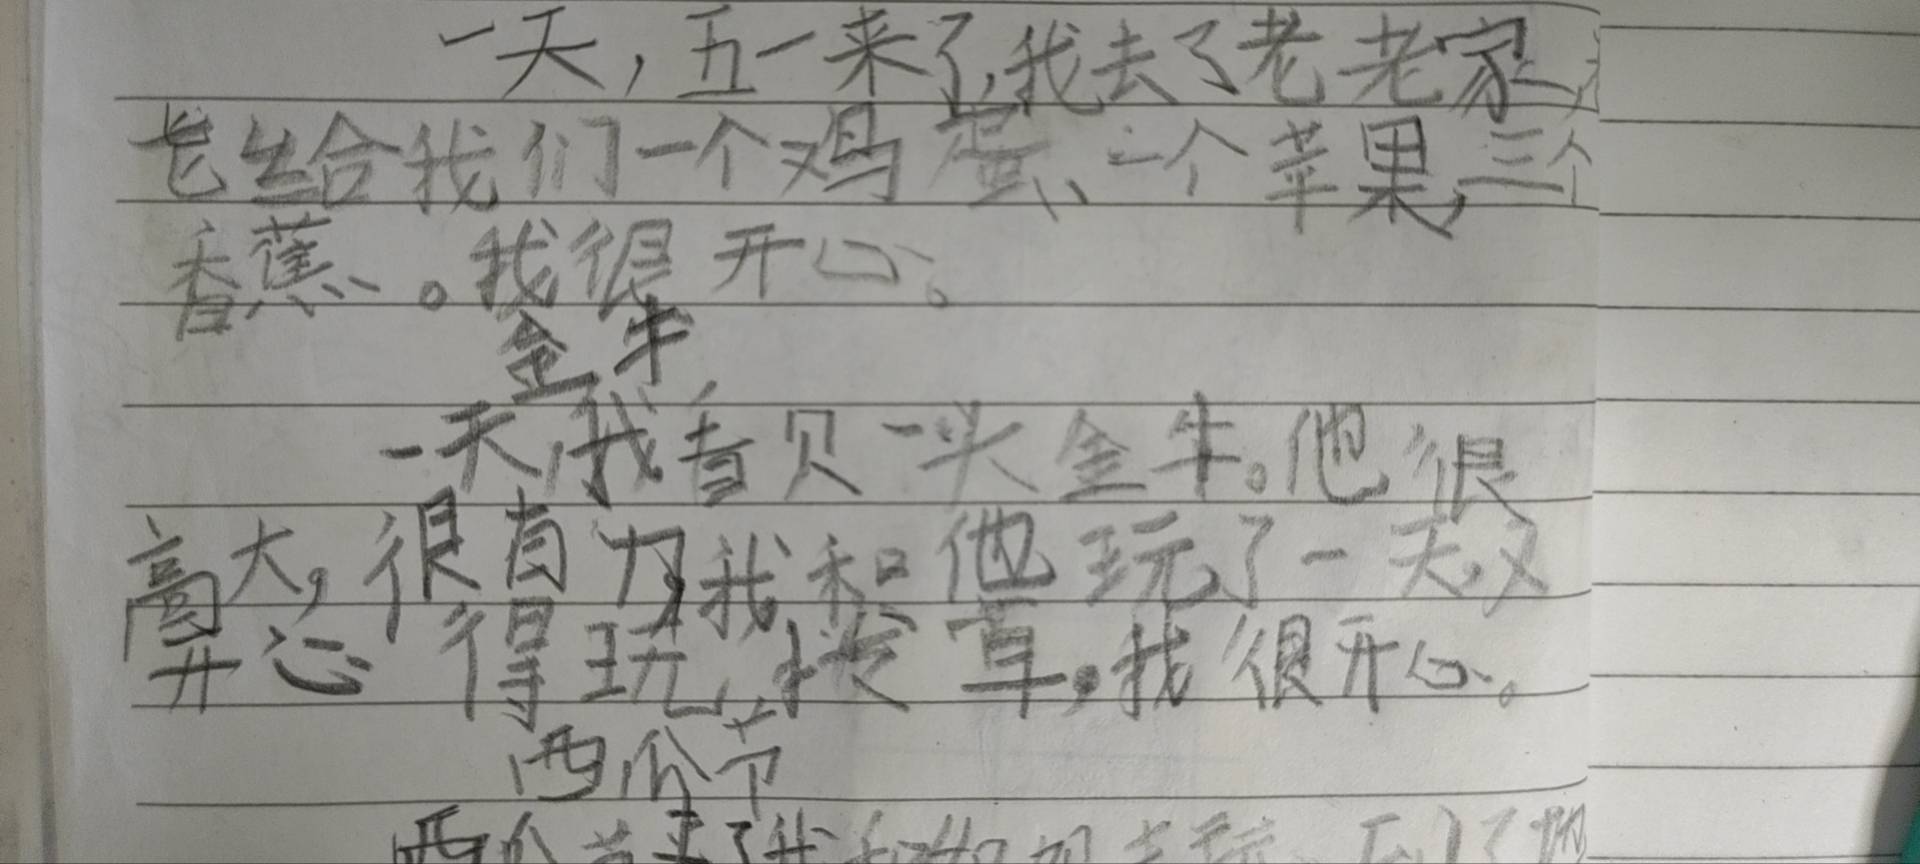 一天，五一来了，我去了老老家，
老给我们一个鸡蛋、二个苹果，三个
香蕉。我很开心。
金牛
一天，我看贝一头金牛。他很
高大，很有力，我和他玩了一天，又
开心得玩，草。我很开心。
西瓜节
西瓜节来了我和